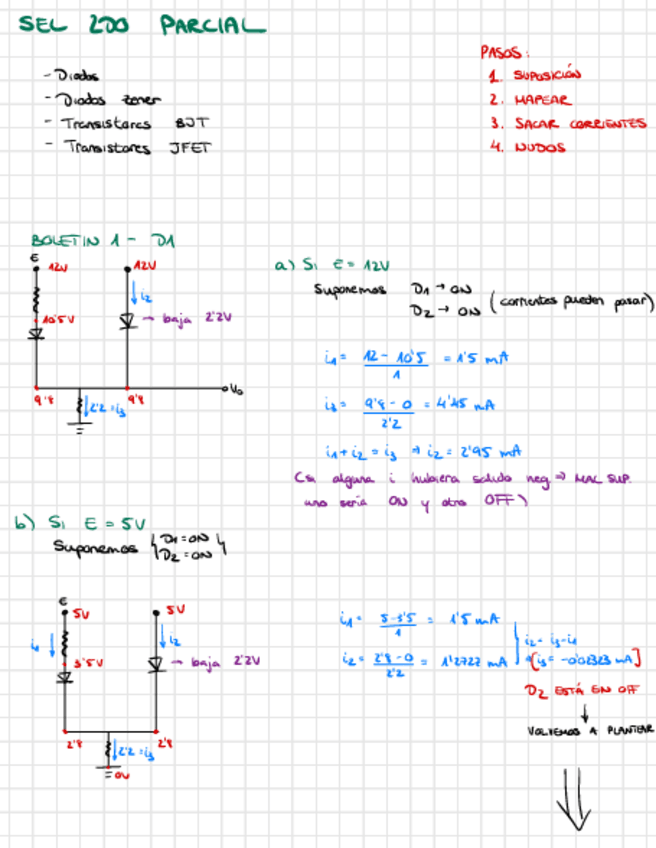 SEL 2DO PARCIAL
- Diodos
- Diodos zener
- Transistores BJT
- Transistores JFET
PASOS:
1. SUPOSICIÓN
2. MAPEAR
3. SACAR CORRIENTES
4. NUDOS
BOLETIN 1 - D1
E
12V
12V
i2
10'5V
→ baja 2'2V
9'8
2'2 = i3
9'8
Vo
a) Si E = 12V
Suponemos D1 → ON
D2 → ON (corrientes pueden pasar)
i1 = 12 - 10'5 / 1 = 1'5 mA
i3 = 9'8 - 0 / 2'2 = 4'45 mA
i1 + i2 = i3 → i2 = 2'95 mA
(si alguna i hubiera salido neg ⇒ MAL SUP.
uno sería ON y otro OFF)
b) Si E = 5V
Suponemos { D1 = ON
D2 = ON }
E
5V
5V
i1
i2
3'5V
→ baja 2'2V
2'8
2'2 = i3
2'8
0V
i1 = 5-3'5 / 1 = 1'5 mA
i2 = 2'8 - 0 / 2'2 = 1'2727 mA
i2 = i3 - i1
[i3 = -0'02323 mA]
D2 ESTÁ EN OFF
↓
VOLVEMOS A PLANTEAR